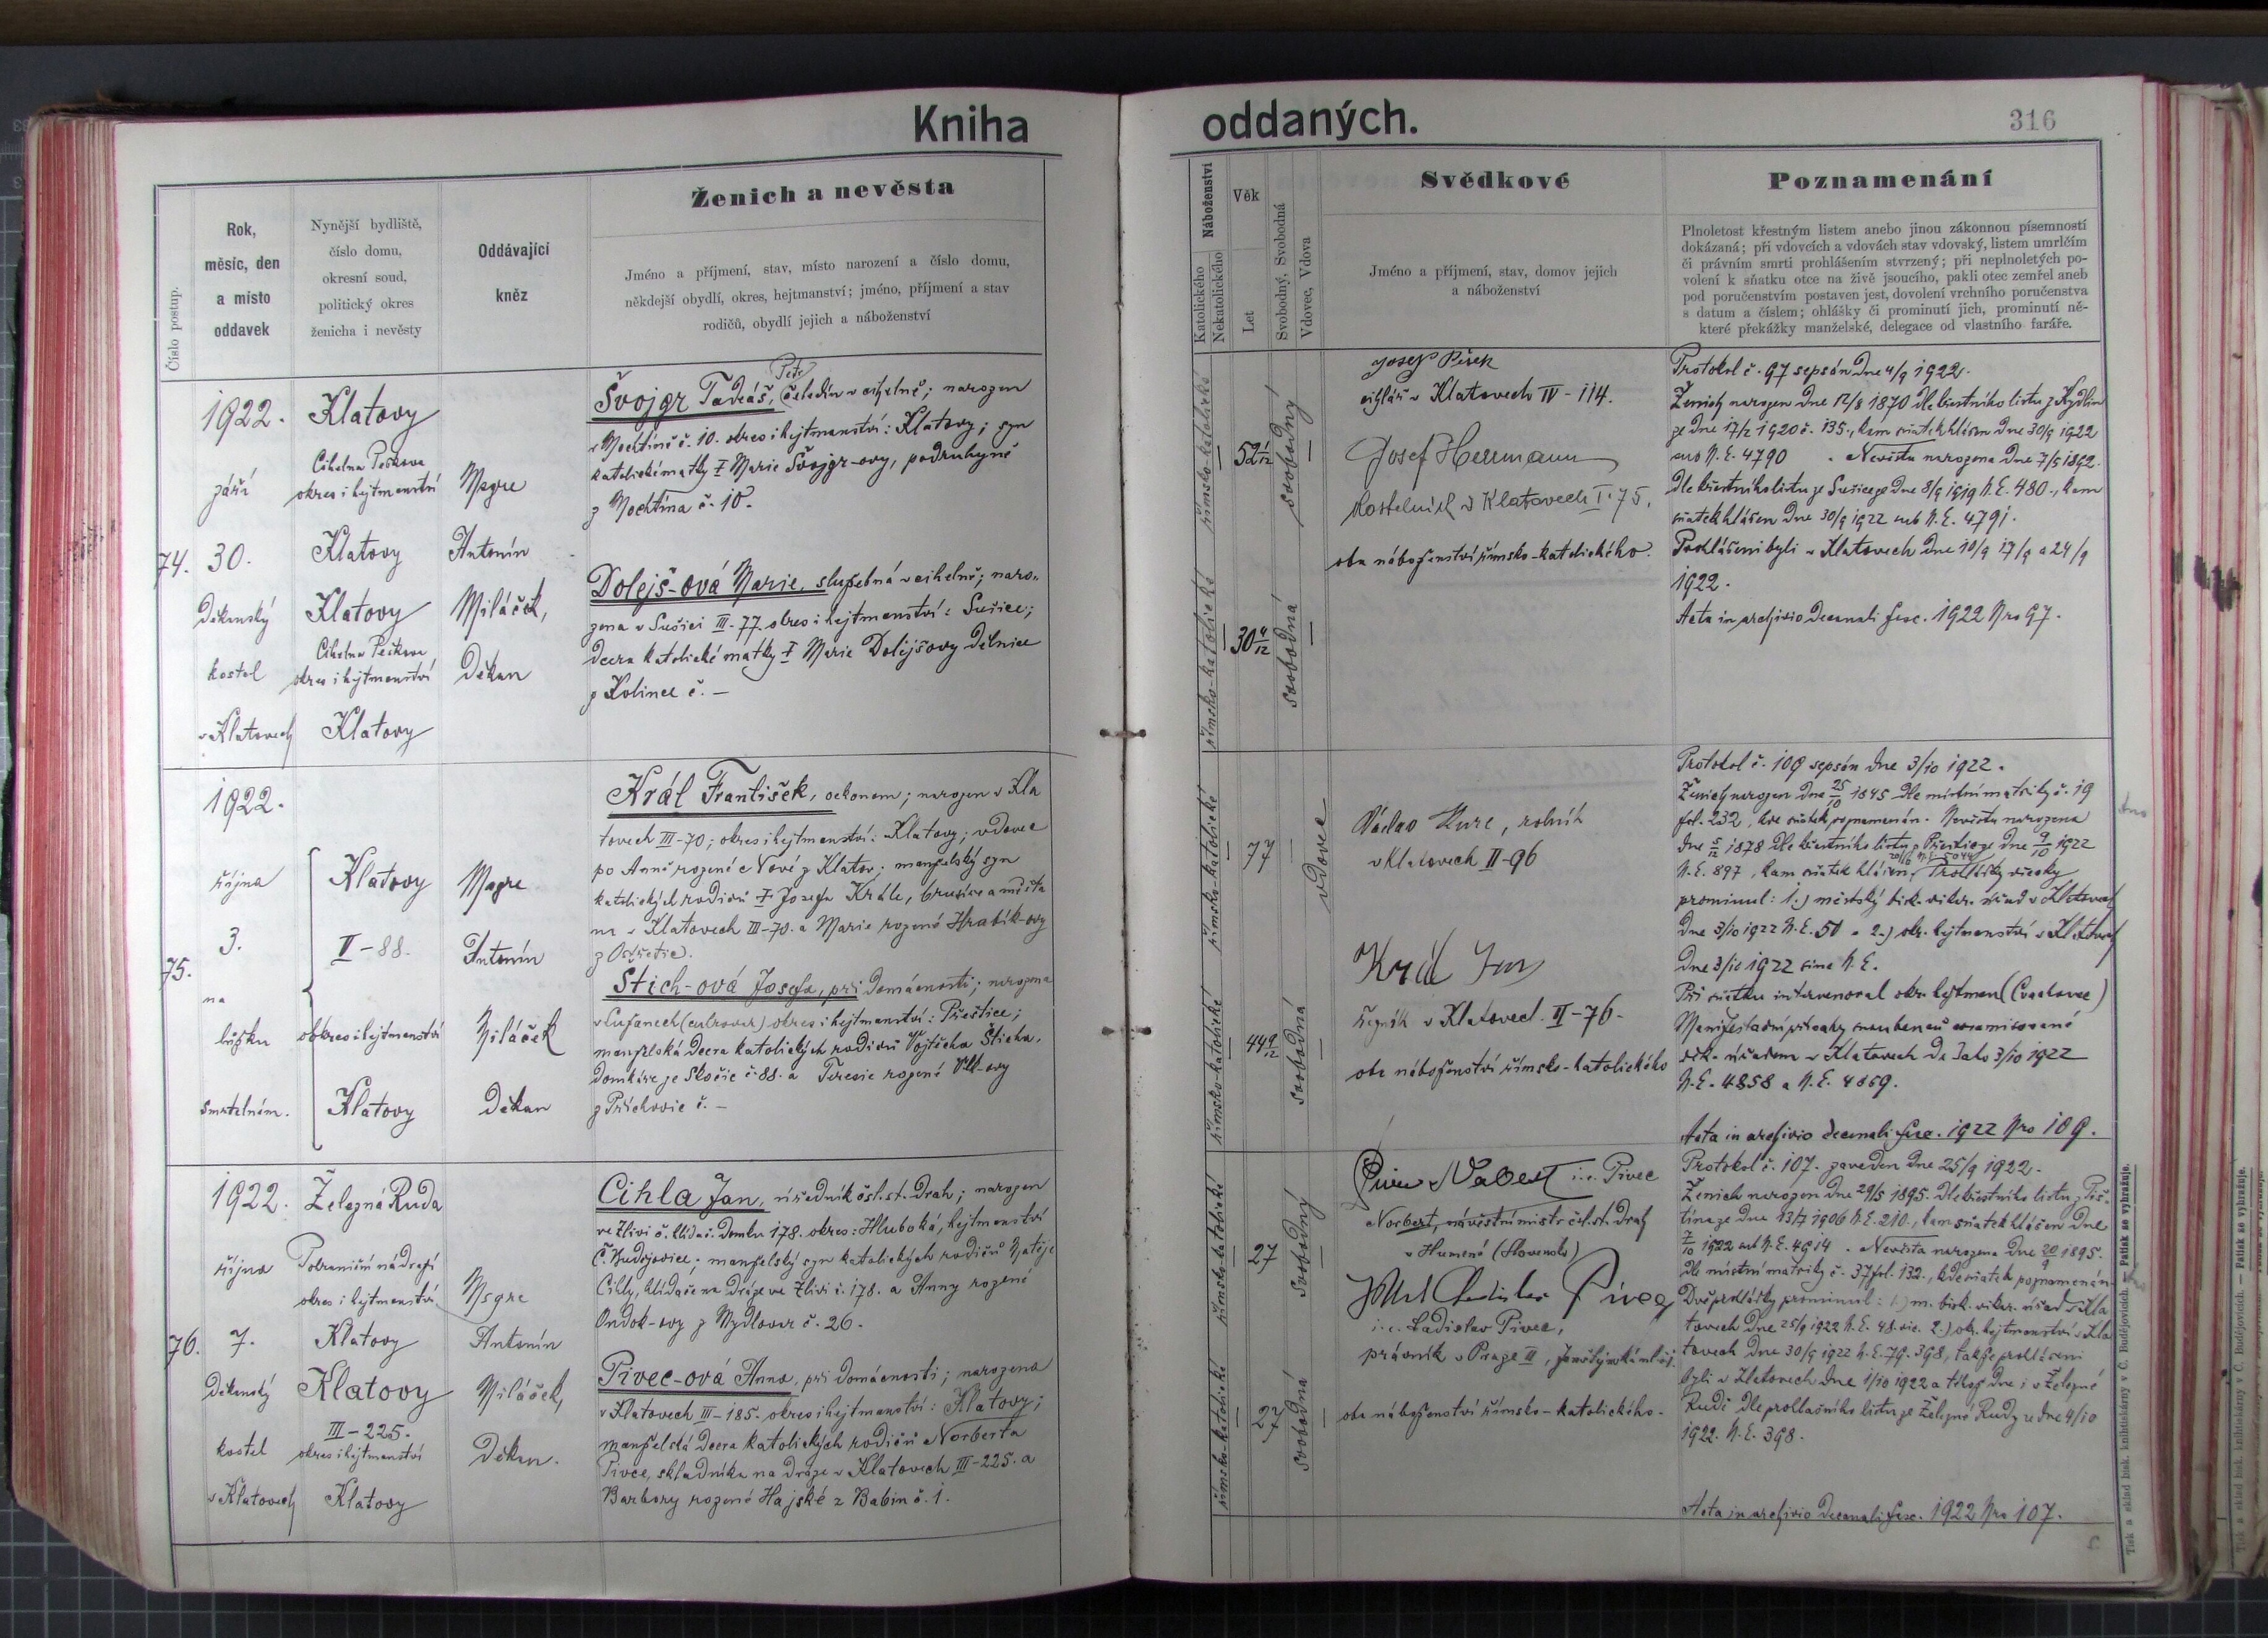 Kniha oddaných.
316
Číslo postup.
Rok,
měsíc, den
a místo
oddavek
Nynější bydliště,
číslo domu,
okresní soud,
politický okres
ženicha i nevěsty
Oddávající
kněz
Ženich a nevěsta
Jméno a příjmení, stav, místo narození a číslo domu,
někdejší obydlí, okres, hejtmanství; jméno, příjmení a stav
rodičů, obydlí jejich a náboženství
Náboženství
Katolického
Nekatolického
Věk
Let
Svobodný, Svobodná
Vdovec, Vdova
Svědkové
Jméno a příjmení, stav, domov jejich
a náboženství
Poznamenání
Plnoletost křestným listem anebo jinou zákonnou písemností
dokázaná; při vdovcích a vdovách stav vdovský, listem umrlčím
či právním smrti prohlášením stvrzený; při neplnoletých po-
volení k sňatku otce na živě jsoucího, pakli otec zemřel aneb
pod poručenstvím postaven jest, dovolení vrchního poručenstva
s datum a číslem; ohlášky či prominutí jich, prominutí ně-
které překážky manželské, delegace od vlastního faráře.
74.
1922.
září
30.
Děkanský
kostel
v Klatovech
Klatovy
Cihelna Peškova
okres i hejtmanství
Klatovy
Klatovy
Cihelna Peškova
okres i hejtmanství
Klatovy
Msgre
Antonín
Miláček,
Děkan
Švojgr Tadeáš, čeledín v cihelně; narozen
v Mochtíně č. 10. okres i hejtmanství: Klatovy; syn
katolické matky † Marie Švojgr-ovy, podruhyně
z Mochtína č. 10.
Dolejš-ová Marie, služebná v cihelně; naro-
zena v Sušici III-77. okres i hejtmanství: Sušice;
dcera katolické matky † Marie Dolejšovy dělnice
z Kolince č. –
římsko-katolické
52 1/12
svobodný
římsko-katolické
30 4/12
svobodná
Josef Pešek
cihlář v Klatovech IV - 114.
Josef Herrmann
kostelník v Klatovech I. 75.
oba náboženství římsko-katolického.
Protokol č. 97 sepsán dne 4/9 1922.
Ženich narozen dne 12/8 1870 dle křestního listu z Kydlin
ze dne 17/2 1920 č. 135., kam sňatek hlášen dne 30/9 1922
sub N. E. 4790. Nevěsta narozena dne 7/5 1892.
dle křestního listu ze Sušice ze dne 8/9 1919 N. E. 480., kam
sňatek hlášen dne 30/9 1922 sub N. E. 4791.
Prohlášeni byli v Klatovech dne 10/9 17/9 a 24/9
1922.
Acta in archivio decanali fasc. 1922 Nro 97.
75.
1922.
října
3.
na
lůžku
smrtelném.
Klatovy
II-88.
okres i hejtmanství
Klatovy
Msgre
Antonín
Miláček
Děkan
Král František, oekonom; narozen v Kla
tovech III-70; okres i hejtmanství: Klatovy; vdovec
po Anně rozené Nové z Klatov; manželský syn
katolických rodičů † Josefa Krále, brusiče a měšťa
na v Klatovech III-70. a Marie rozené Hrabík-ovy
Štich-ová Josefa, při domácnosti; narozena
v Lužanech (cukrovar) okres i hejtmanství: Přeštice;
manželská dcera katolických rodičů Vojtěcha Šticha,
domkáře ze Skočic č. 88. a Terezie rozené
z Příchovic č. –
římsko-katolické
77
vdovec
římsko-katolické
44 9/12
svobodná
Václav Kurc, rolník
v Klatovech II-96
Král Jan
řezník v Klatovech II-76-
oba náboženství římsko-katolického
Protokol č. 109 sepsán dne 3/10 1922.
Ženich narozen dne 25/10 1845 dle místní matriky č. 19
fol. 232, kde sňatek poznamenán. Nevěsta narozena
dne 5/12 1878 dle křestního listu z Přeštic ze dne 9/10 1922
N. E. 897, kam sňatek hlášen. Prohlášky všecky
prominul: 1.) městský bisk. vikar. úřad v Klatovech
dne 3/10 1922 N. E. 50 a 2.) okr. hejtmanství v Klatovech
dne 3/10 1922 sine N. E.
Při sňatku intervenoval okr. hejtman
dto 3/10 1922
N. E. 4858 a N. E. 4859.
Acta in archivio decanali fasc. 1922 Nro 109.
76.
1922.
října
7.
Děkanský
kostel
v Klatovech
Železná Ruda
Pohraniční nádraží
okres i hejtmanství
Klatovy
Klatovy
III-225.
okres i hejtmanství
Klatovy
Msgre
Antonín
Miláček,
Děkan.
Cihla Jan, úředník čsl. st. drah; narozen
ve Zlivi č. hlídač. domku 178. okres: Hluboká, hejtmanství
Č. Budějovice; manželský syn katolických rodičů Matěje
Cihly, hlídače na dráze ve Zlivi č. 178. a Anny rozené
Ondok-ovy z Mydlovar č. 26.
Pivec-ová Anna, při domácnosti; narozena
v Klatovech III-185. okres i hejtmanství: Klatovy;
manželská dcera katolických rodičů Norberta
Pivce, skladníka na dráze v Klatovech III-225. a
Barbory rozené Hajské z Babin č. 1.
římsko-katolické
27
svobodný
římsko-katolické
27
svobodná
i.e. Pivec
Norbert, návěstní mistr čsl. st. drah
v Humenné (Slovensko)
Pivec
i.e. Ladislav Pivec,
právník v Praze II,
oba náboženství římsko-katolického.
Protokol č. 107. zaveden dne 25/9 1922.
Ženich narozen dne 29/5 1895. dle křestního listu z Piš-
tína ze dne 13/7 1906 N. E. 210., kam sňatek hlášen dne
7/10 1922 sub N. E. 4914. Nevěsta narozena dne 20/9 1895.
dle místní matriky č. 37 fol. 132., kde sňatek poznamenán.
Dvě prohlášky prominul: 1.) m. bisk. vikar. úřad v Kla
tovech dne 25/9 1922 N. E. 48. vic. 2.) okr. hejtmanství v Kla
tovech dne 30/9 1922 N. E. 79.398, takže prohlášeni
byli v Klatovech dne 1/10 1922 a téhož dne i v Železné
Rudě dle prohlašního listu ze Železné Rudy ze dne 4/10
1922. N. E. 398.
Acta in archivio decanali fasc. 1922 Nro 107.
Tisk a sklad bisk. knihtiskárny v Č. Budějovicích. — Patisk se vyhražuje.